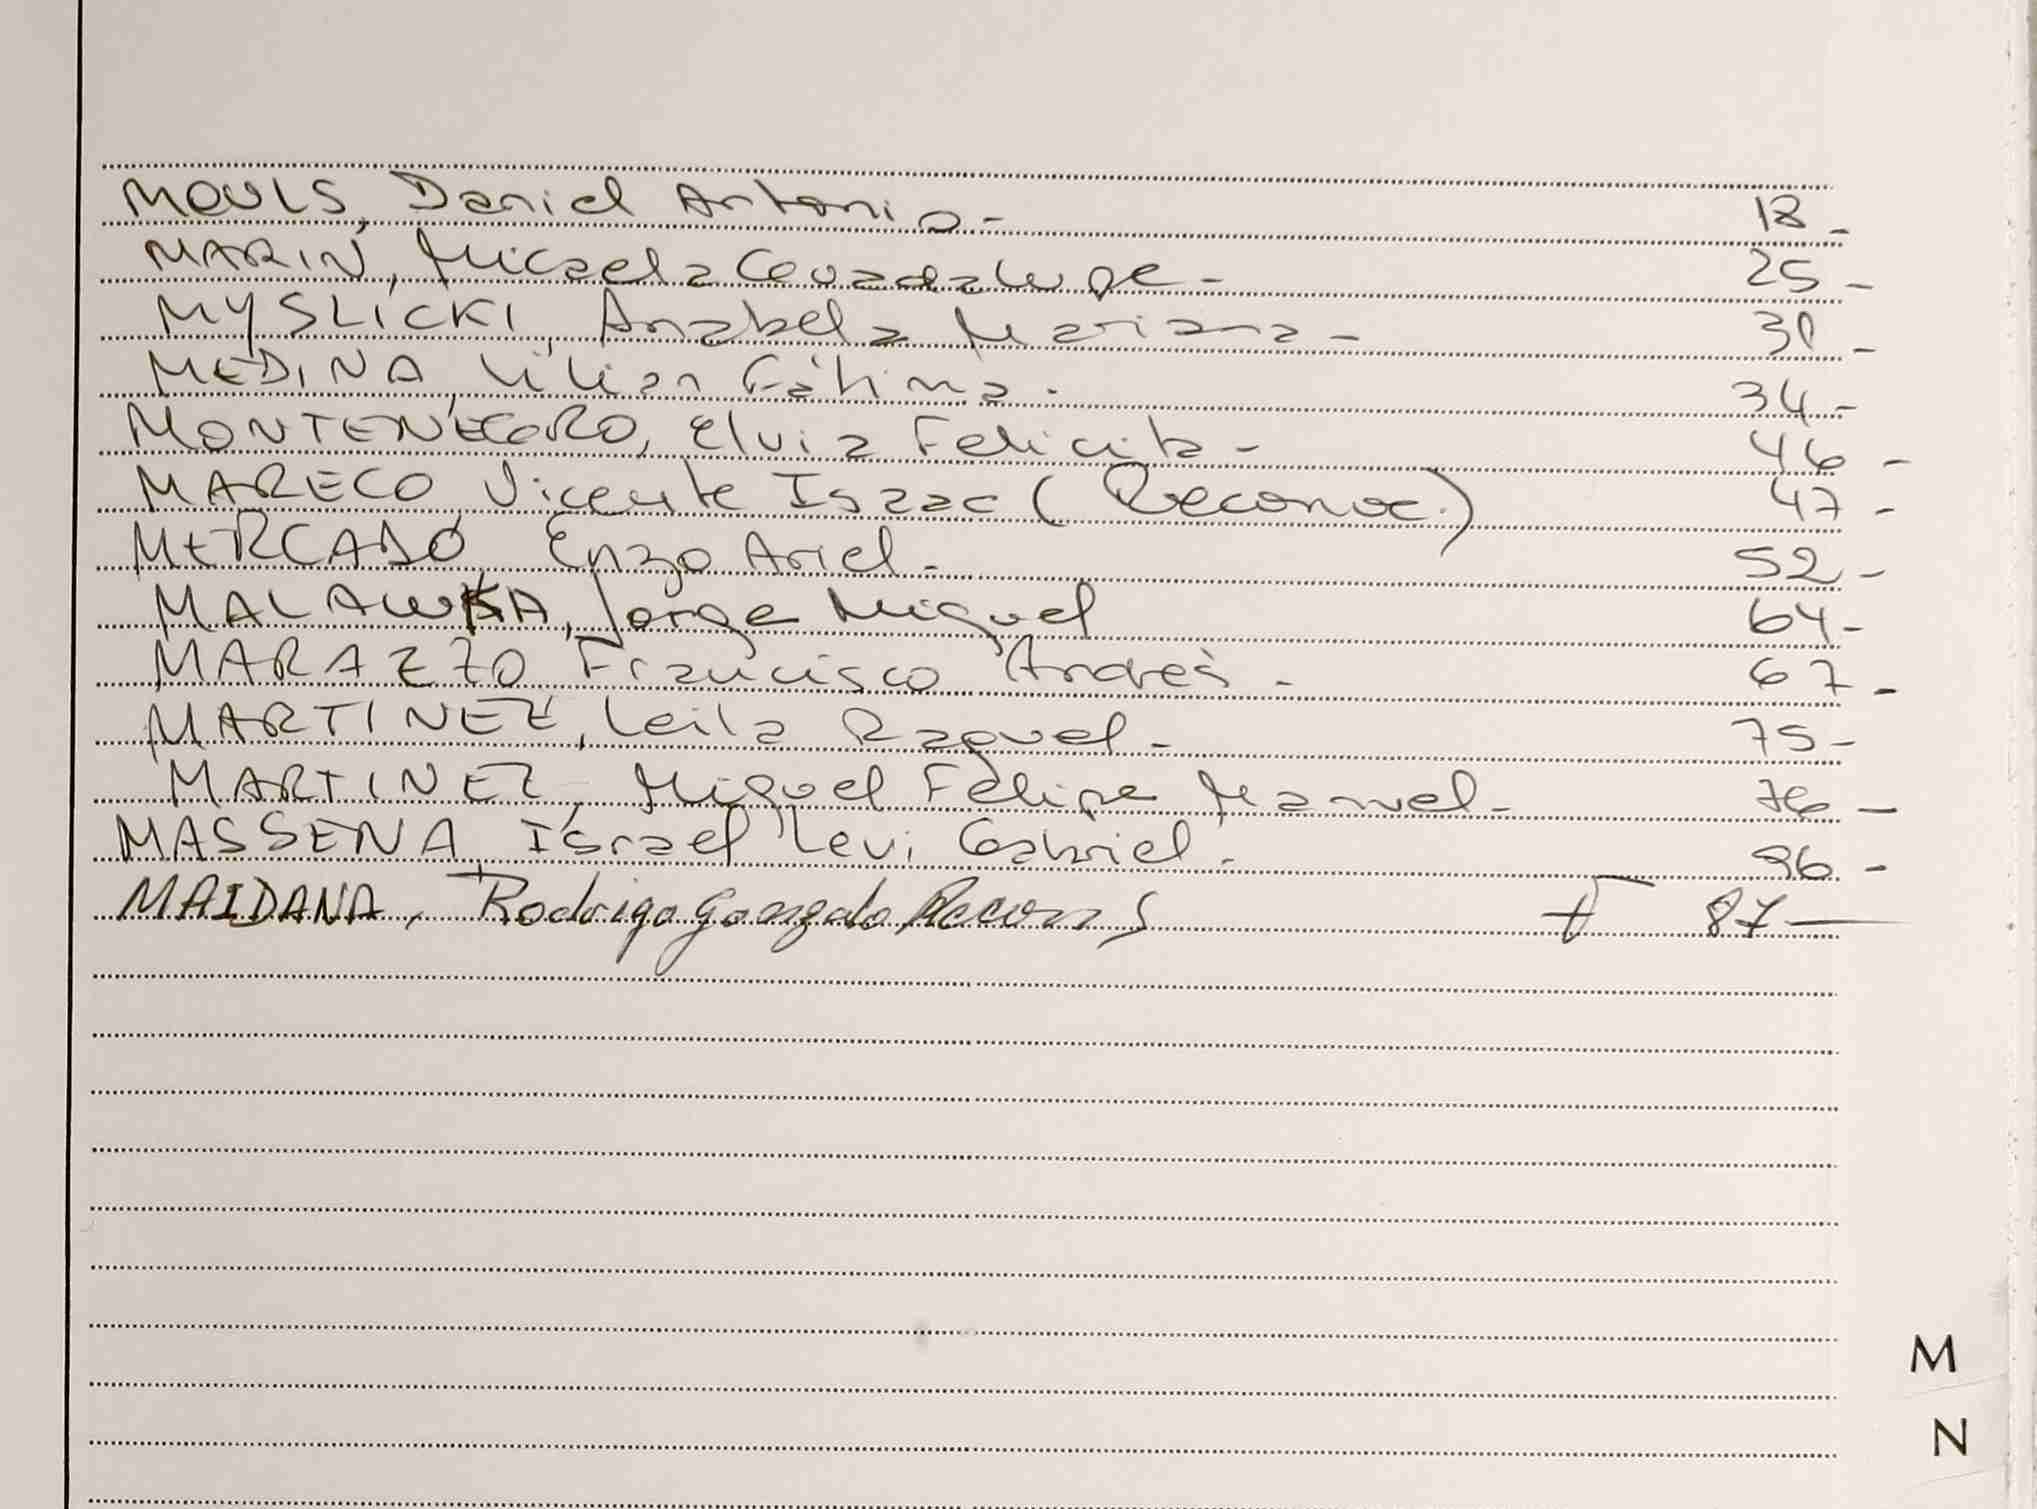 MOULS, Daniel Antonio - 18 -
MARIN, Micaela Guadalupe - 25 -
MYSLICKI, Anabela Mariana - 31 -
MEDINA, Lilian Fátima - 34 -
MONTENEGRO, Elvia Felicita - 46 -
MARECO, Vicente Isaac (Reconoc.) 47 -
MERCADO, Enzo Ariel - 52 -
MALAWKA, Jorge Miguel 64 -
MARAZZO, Francisco Andrés - 67 -
MARTINEZ, Leila Raquel - 75 -
MARTINEZ, Miguel Felipe Manuel - 76 -
MASSENA, Israel Levi Gabriel - 96 -
MAIDANA, Rodrigo Gonzalo Fº 87 -
M
N